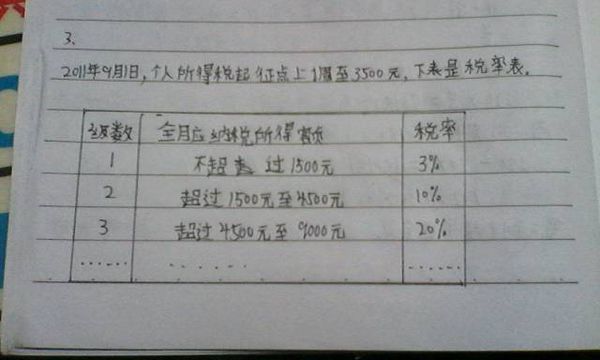 3.
2011年9月1日,个人所得税起征点上调至3500元,下表是税率表.
级数 全月应纳税所得额 税率
1 不超过1500元 3%
2 超过1500元至4500元 10%
3 超过4500元至9000元 20%
…… …… ……